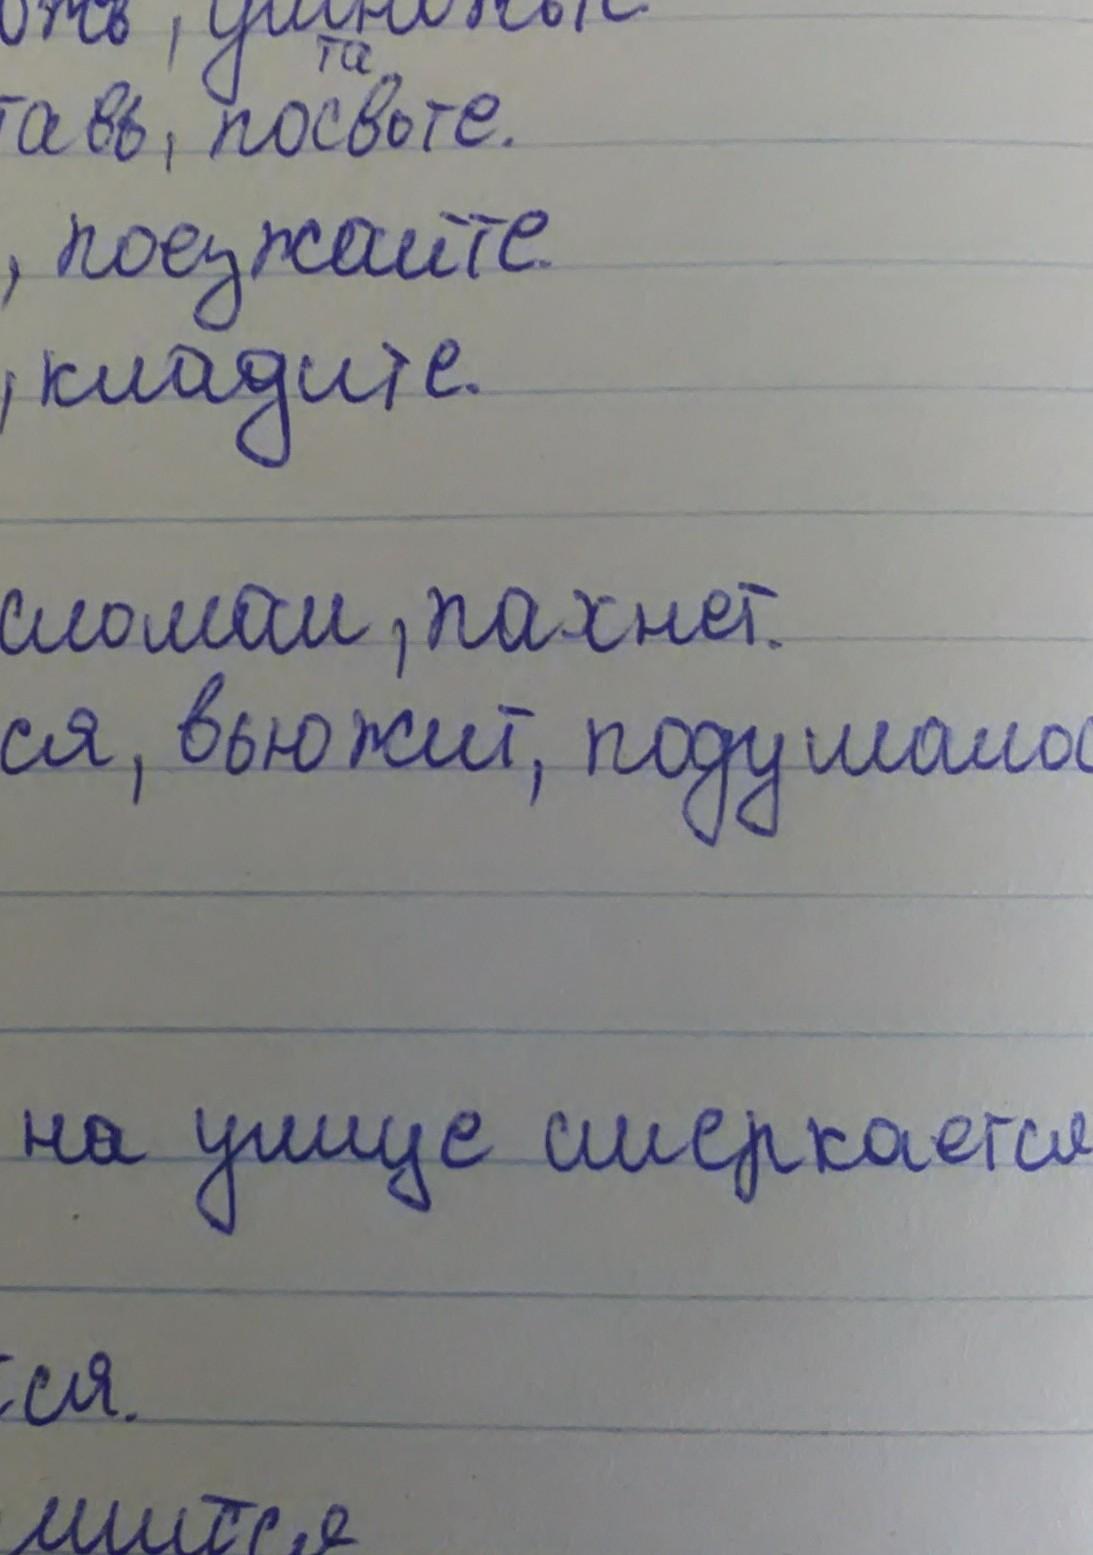 та
тавь, посвьте.
, поезжайте.
, кладите.
сломал, пахнет.
ся, вьюжит, подумалос
на улице смеркается
тся.